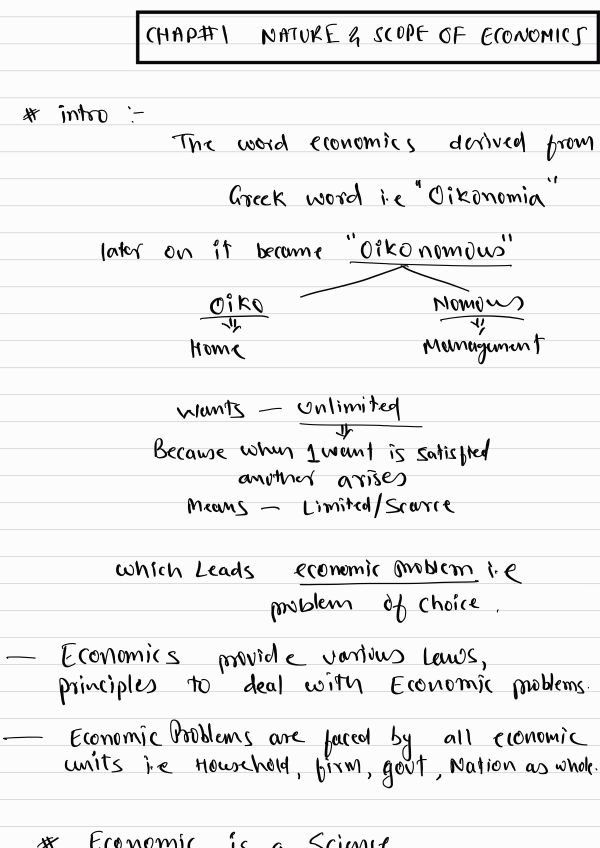 CHAP#1 NATURE & SCOPE OF ECONOMICS
# intro :-
The word economics derived from
Greek word i.e "Oikonomia"
later on it became "Oikonomous"
Oiko Nomous
Home Management
Wants — Unlimited
Because when 1 want is satisfied
another arises
Means — Limited/Scarce
which Leads economic problem i.e
problem of choice.
— Economics provide various laws,
principles to deal with Economic problems.
— Economic Problems are faced by all economic
units i.e Household, firm, govt, Nation as whole.
# Economic is a Science